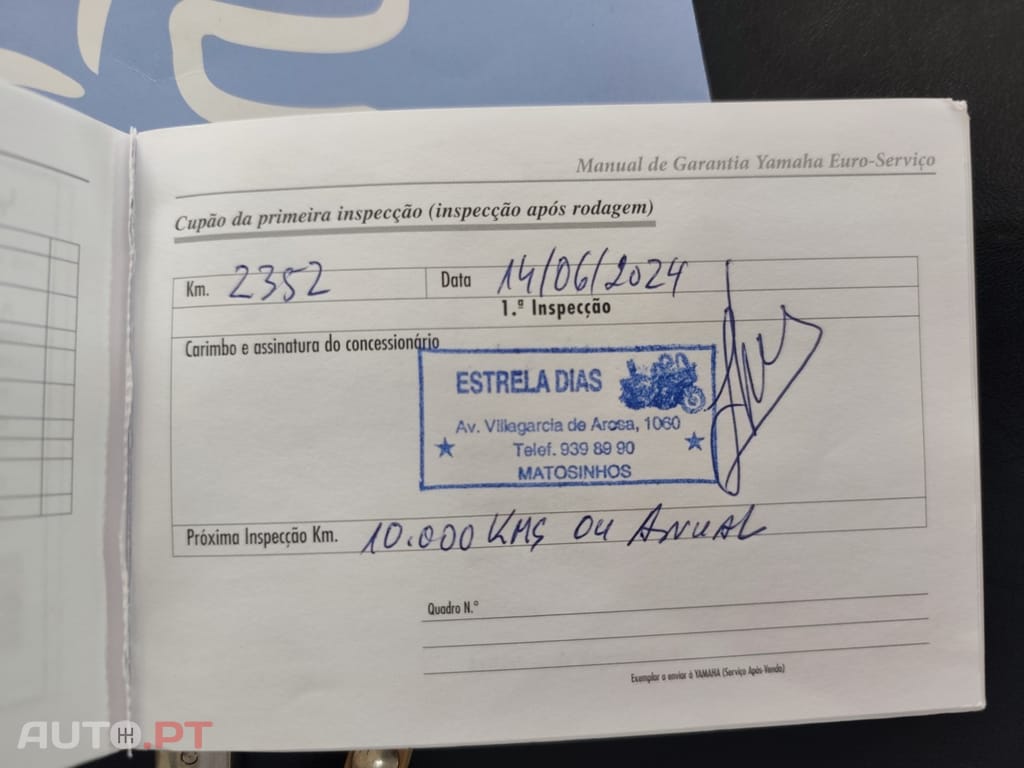 Manual de Garantia Yamaha Euro-Serviço
Cupão da primeira inspecção (inspecção após rodagem)
Km. 2352 Data 14/06/2024
1.ª Inspecção
Carimbo e assinatura do concessionário
ESTRELA DIAS
Av. Villagarcia de Arosa, 1060
Telef. 939 89 90
MATOSINHOS
Próxima Inspecção Km. 10.000 KMS ou ANUAL
Quadro N.°
Exemplar a enviar à YAMAHA (Serviço Após-Venda)
AUTO.PT